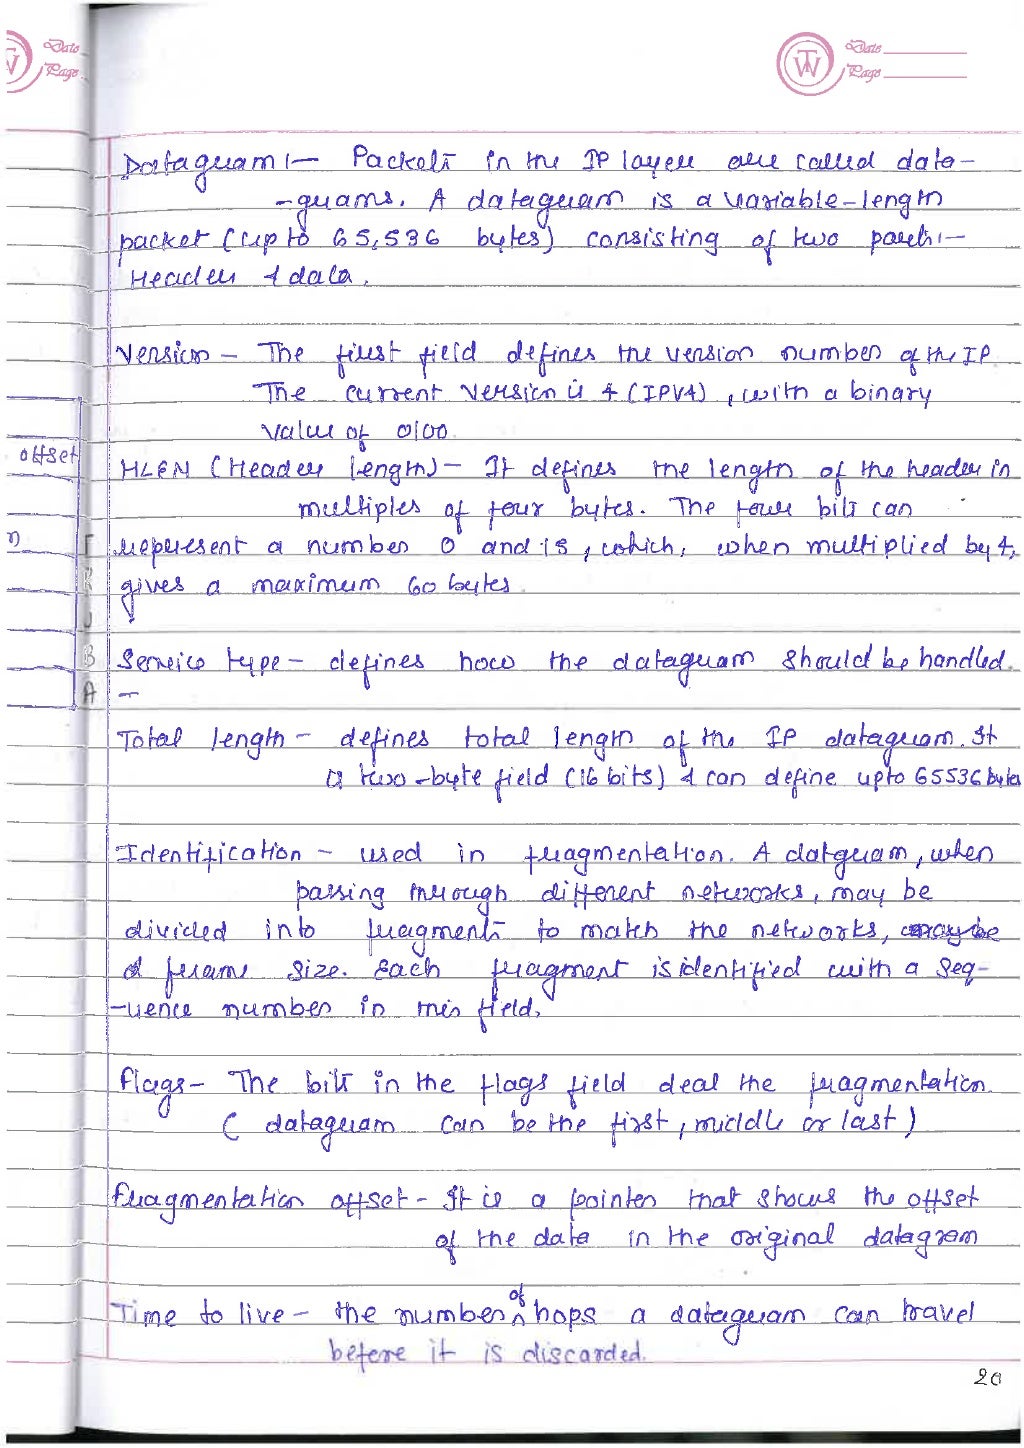 Date
Page
Date
Page
Datagram :- Packets in the IP layer are called data-
-grams. A datagram is a variable-length
packet (up to 65,536 bytes) consisting of two parts :-
Header & data.
Version - The first field defines the version number of the IP.
The current version is 4 (IPV4), with a binary
value of 0100.
offset
HLEN (Header length) - It defines the length of the header in
multiples of four bytes. The four bits can
n
represent a number 0 and 15, which, when multiplied by 4,
gives a maximum 60 bytes.
Service type - defines how the datagram should be handled.
B
A
Total length - defines total length of the IP datagram. It
is two-byte field (16 bits) & can define upto 65536 bytes
Identification - used in fragmentation. A datgram, when
passing through different networks, may be
divided into fragments to match the networks,
d frame size. Each fragment is identified with a seq-
-uence number in this field.
Flags - The bits in the flags field deal the fragmentation.
( datagram can be the first, middle or last )
Fragmentation offset - It is a pointer that shows the offset
of the data in the original datagram
Time to live - the number of hops a datagram can travel
before it is discarded.
20